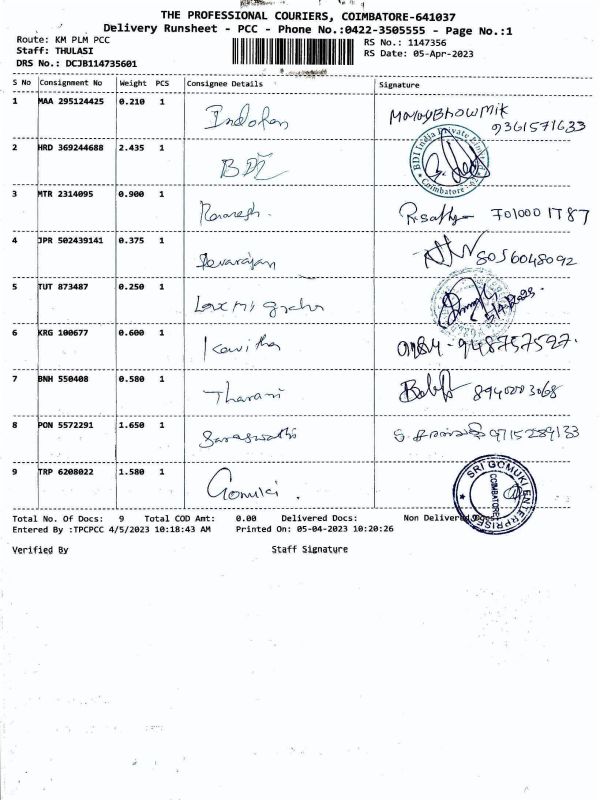 THE PROFESSIONAL COURIERS, COIMBATORE-641037
Delivery Runsheet - PCC - Phone No.:0422-3505555 - Page No.:1
Route: KM PLM PCC
Staff: THULASI
DRS No.: DCJB114735601
RS No.: 1147356
RS Date: 05-Apr-2023
S No Consignment No Weight PCS Consignee Details Signature
1 MAA 295124425 0.210 1 Indofan
9361571633
2 HRD 369244688 2.435 1 BDI
BDI India Private Coimbatore
3 MTR 2314095 0.900 1 Ramesh. 7010001787
4 JPR 502439141 0.375 1 Devarajan 8056048092
5 TUT 873487 0.250 1 Laxmi
6 KRG 100677 0.600 1 Kavitha 948757527.
7 BNH 550408 0.580 1 Tharani
8 PON 5572291 1.650 1 Saraswathi 9715289133
9 TRP 6208022 1.580 1 Gomuki.
SRI GOMUKI ENTERPRISES COIMBATORE
Total No. Of Docs: 9 Total COD Amt: 0.00 Delivered Docs: Non Delivered
Entered By :TPCPCC 4/5/2023 10:18:43 AM Printed On: 05-04-2023 10:20:26
Verified By Staff Signature